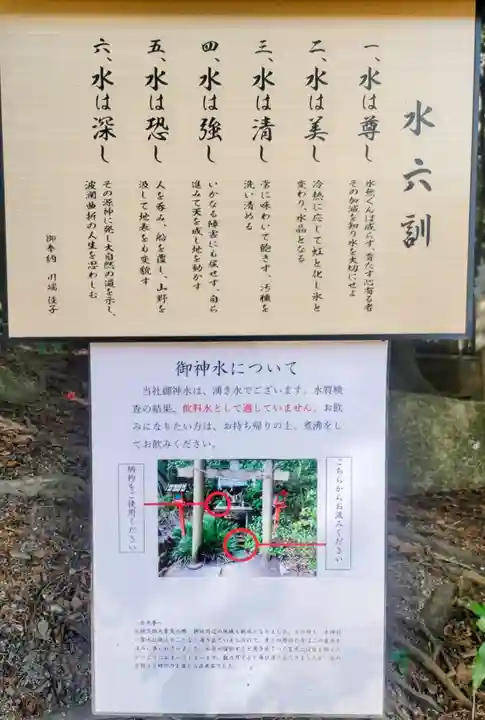 水六訓
一、水は尊し
水無くんば成らず、育たす心有る者
その加減を知り水を大切にせよ
二、水は美し
冷熱に応じて虹と化し氷と
変わり、水晶となる
三、水は清し
常に味わいて飽きず、汚穢を
洗い清める
四、水は強し
いかなる障害にも屈せず、自ら
進みて天を成し地を動かす
五、水は恐し
人を呑み、船を覆し、山野を
汲して地表をも変貌す
六、水は深し
その源神に発し大自然の道を示し、
波瀾曲折の人生を思わしむ
御奉納 川端佳子
御神水について
当社御神水は、湧き水でございます。水質検
査の結果、飲料水として適していません。お飲
みになりたい方は、お持ち帰りの上、煮沸をし
てお飲みください。
こちらからお汲みください
柄杓をご使用ください